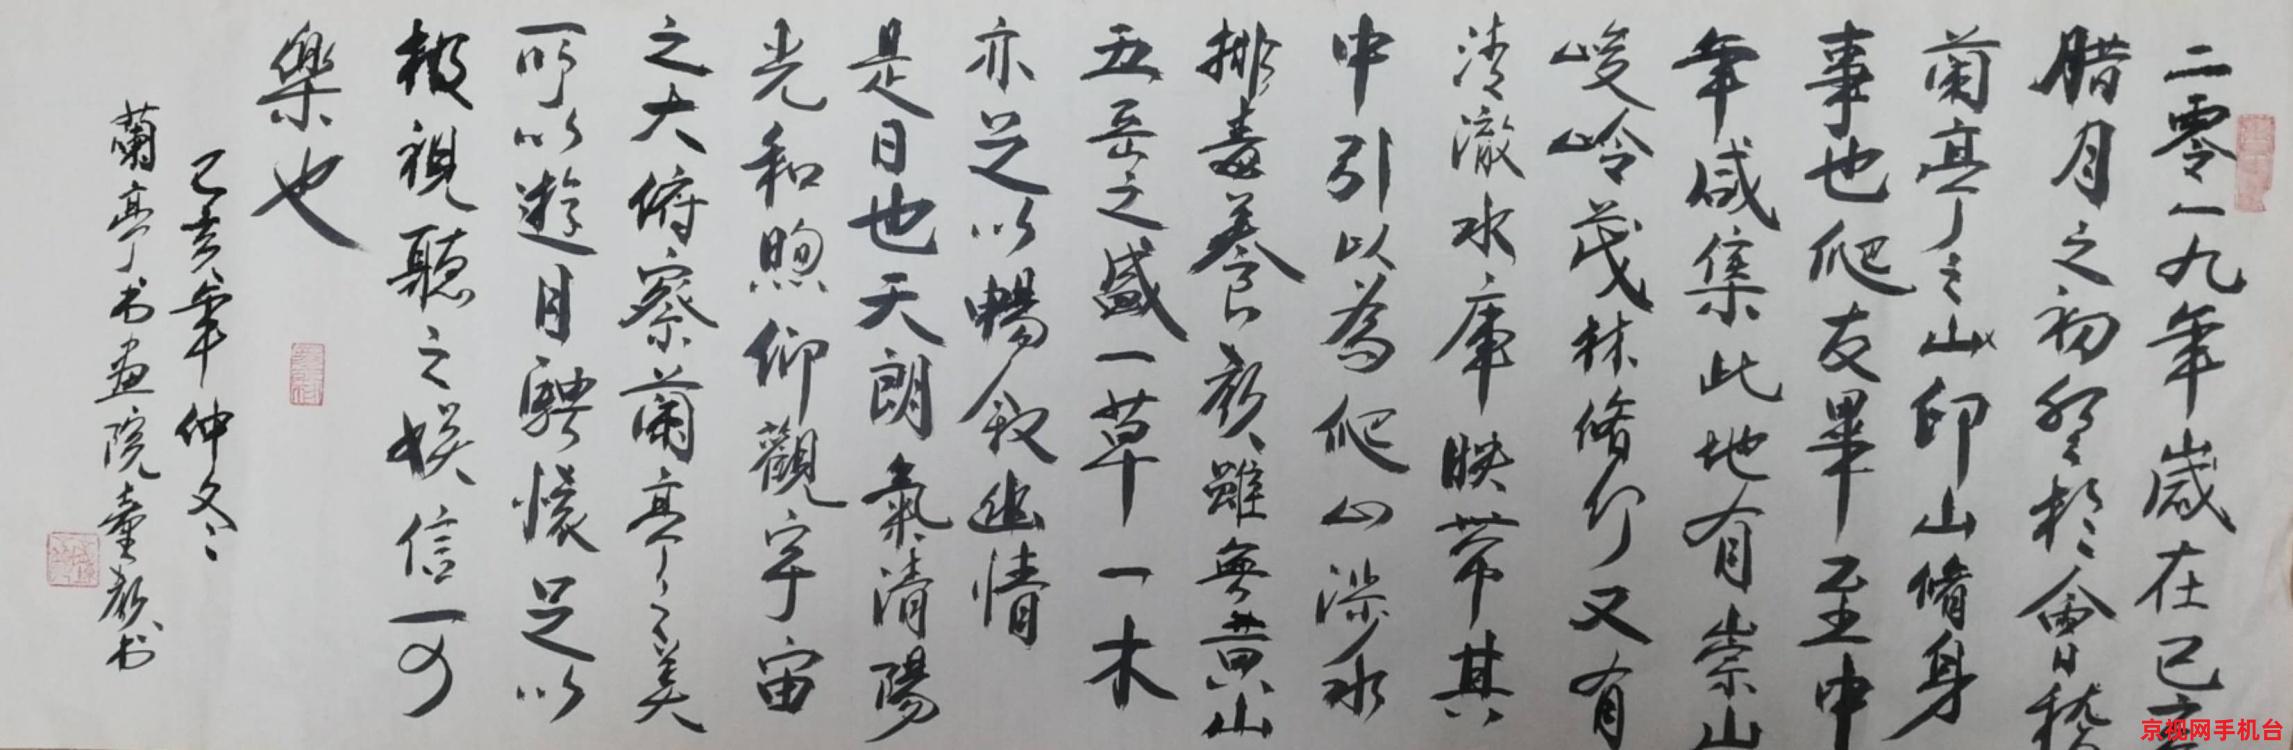 二零一九年歲在己亥
腊月之初 於會稽
蘭亭之山印山脩身
事也爬友畢至中
年咸集此地有崇山
峻岭茂林脩竹又有
清澈水庫映帶其
中引以為爬山涉水
排毒養顏雖無黃山
五岳之盛一草一木
亦足以暢敘幽情
是日也天朗氣清陽
光和煦仰觀宇宙
之大俯察蘭亭之美
所以遊目騁懷足以
極視聽之娛信可
樂也
己亥年仲冬
蘭亭书画院童 书
京视网手机台